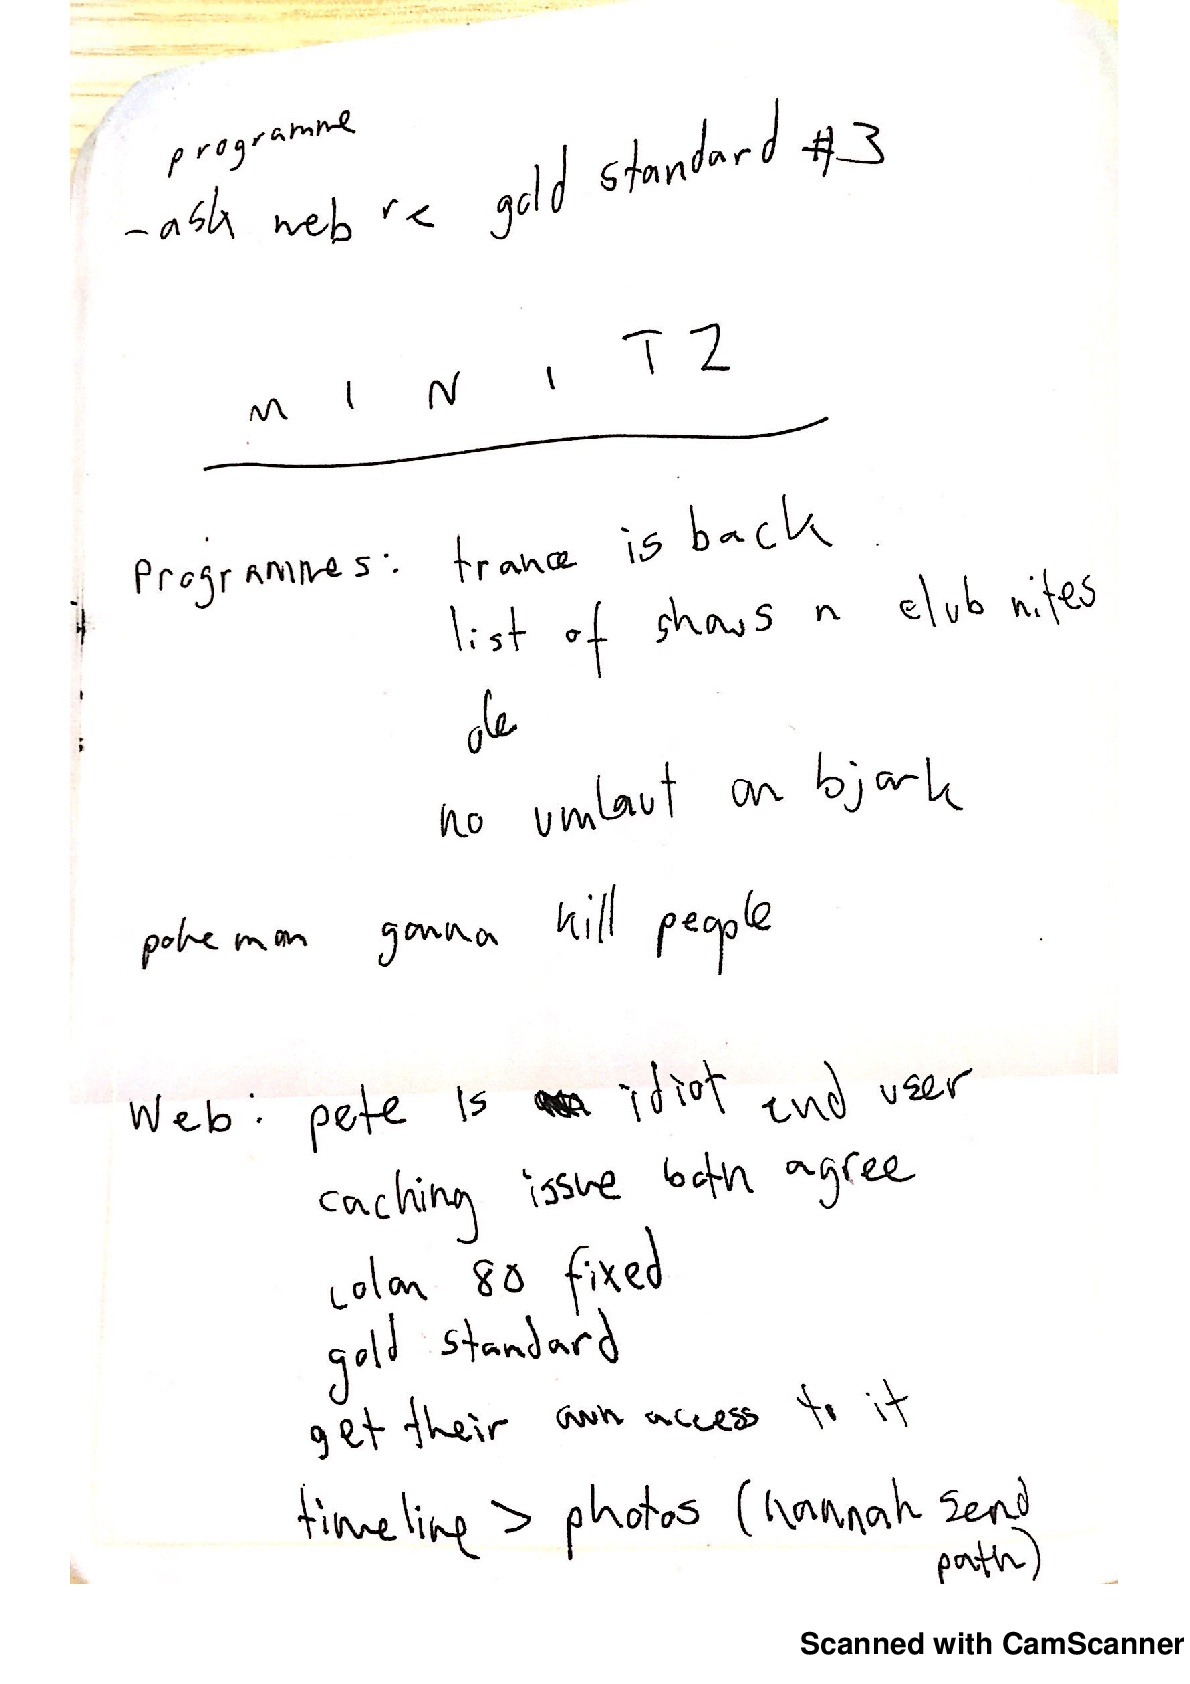 programme
- ask web re gold standard #3
M I N I T Z
Programmes: trance is back
list of shows n club nites
ok
no umlaut on bjork
pokemon gonna kill people
Web: pete is idiot end user
caching issue both agree
colon 80 fixed
gold standard
get their own access to it
timeline > photos (hannah send
path)
Scanned with CamScanner